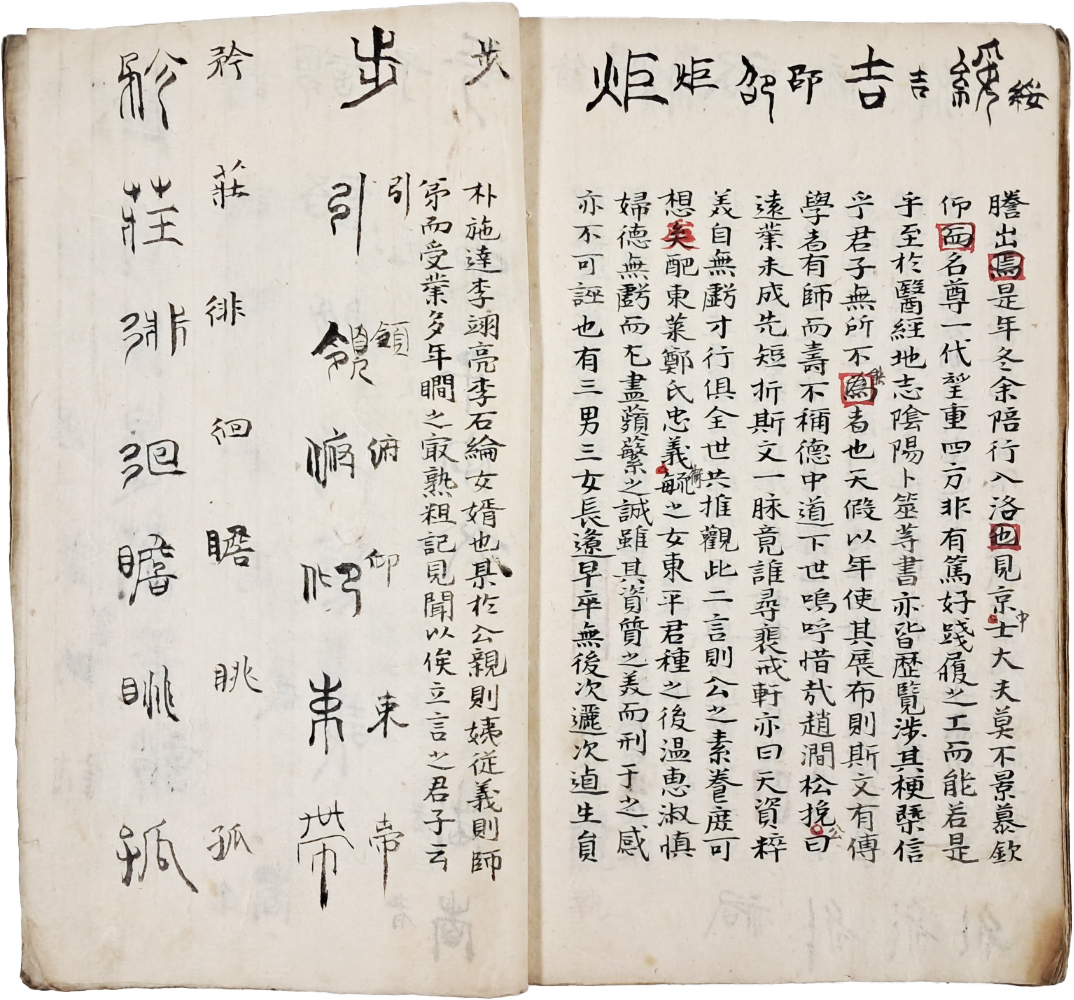 綏 綏 吉 吉 邵 邵 炬 炬
謄出焉是年冬余陪行入洛也見京中士大夫莫不景慕欽
仰而名尊一代望重四方非有篤好踐履之工而能若是
乎至於醫經地志陰陽卜筮等書亦皆歷覽涉其梗槩信
乎君子無所不爲者也天假以年使其展布則斯文有傳
學者有師而壽不稱德中道下世嗚呼惜哉趙澗松挽公曰
遠業未成先短折斯文一脉竟誰尋裵戒軒亦曰天資粹
美自無虧才行俱全世共推觀此二言則公之素養庶可
想矣配東萊鄭氏忠義衛毓之女東平君種之後温惠淑愼
婦德無虧而尤盡蘋蘩之誠雖其資質之美而刑于之感
亦不可誣也有三男三女長遼早卒無後次邐次逌生員
步
朴施逵李翊亮李石綸女婿也某於公親則姨從義則師
弟而受業多年瞯之最熟粗記見聞以俟立言之君子云
引領俯仰束帶
步引領俯仰束帶
矜莊徘徊瞻眺孤
矜莊徘徊瞻眺孤